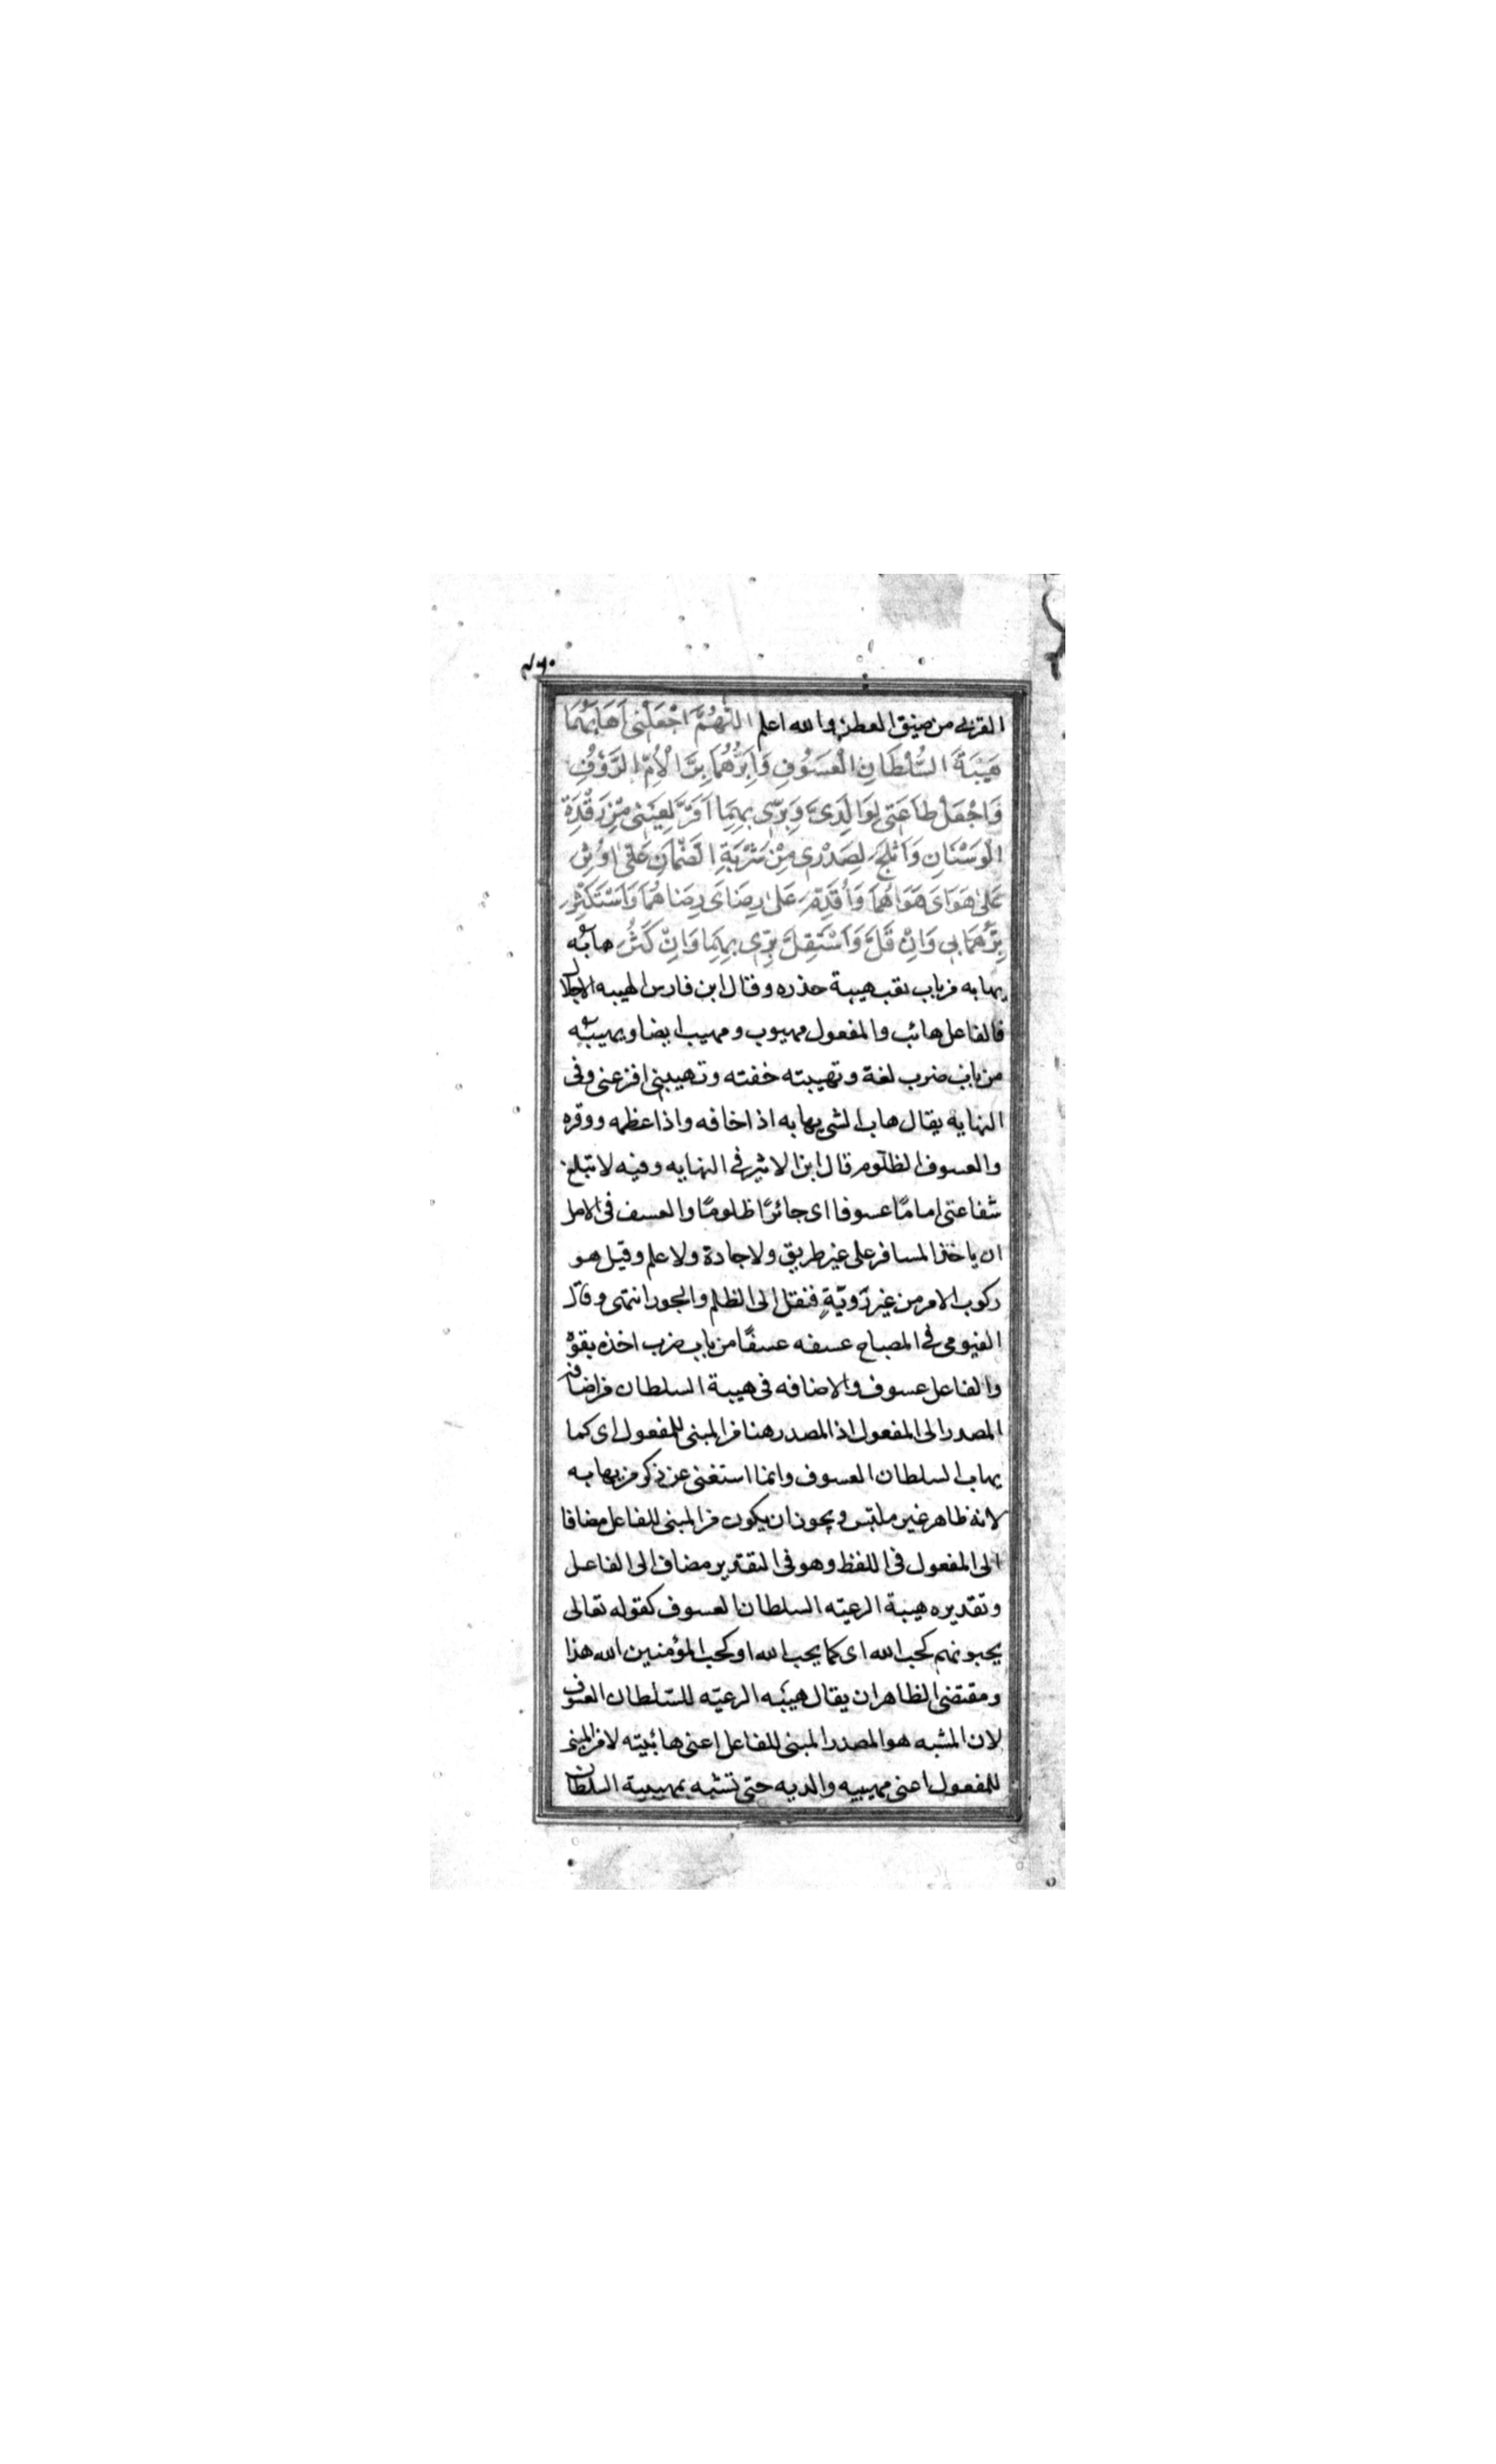 القربى من ضيق العطن والله اعلم اَللّٰهُمَّ اجْعَلْنى اَهَابُهُمَا
هَيْبَةَ السُّلْطَانِ الْعَسُوفِ وَاَبَرُّهُمَا بِرَّ الْاُمِّ الرَّؤُفِ
وَاجْعَلْ طَاعَتى لِوَالِدَىَّ وَبِرّى بِهِمَا اَقَرَّ لِعَيْنى مِنْ رَقْدَةِ
الْوَسْنَانِ وَاَثْلَجَ لِصَدْرى مِنْ شَرْبَةِ الضَّمْاٰنِ حَتّىٰ اُوثِرَ
عَلىٰ هَوَاىَ هَوَاهُمَا وَاُقَدِّمَ عَلىٰ رِضَاىَ رِضَاهُمَا وَاَسْتَكْثِرَ
بِرَّهُمَا بى وَاِنْ قَلَّ وَاَسْتَقِلَّ بِرّى بِهِمَا وَاِنْ كَثُرَ هابه
يهابه من باب تعب هيبة حذره وقال ابن فارس الهيبه الاجلال
فالفاعل هائب والمفعول مهيوب ومهيب ايضا ويهيبه
من باب ضرب لغة وتهيبته خفته وتهيبنى افزعنى وفى
النهايه يقال هاب الشى يهابه اذا خافه واذا عظمه ووقره
والعسوف الظلوم قال ابن الاثير فى النهايه وفيه لا تبلغ
شفاعتى امامًا عسوفا اى جائرًا ظلومًا والعسف فى الاصل
ان ياخذ المسافر على غير طريق ولا جادة ولا علم وقيل هو
ركوب الامر من غير رَويّةٍ فنقل الى الظلم والجور انتهى وقال
الفيومى فى المصباح عسفه عسفًا من باب ضرب اخذه بقوة
والفاعل عسوف والاضافه فى هيبة السلطان من اضافة
المصدر الى المفعول اذ المصدر هنا من المبنى للمفعول اى كما
يهاب السلطان العسوف وانما استغنى عن ذكر من يهابه
لانه ظاهر غير ملتبس ويجوز ان يكون من المبنى للفاعل مضافا
الى المفعول فى اللفظ وهو فى التقدير مضاف الى الفاعل
وتقديره هيبة الرعيّه السلطان العسوف كقوله تعالى
يحبونهم كحب الله اى كما يحب الله او كحب المؤمنين الله هذا
ومقتضى الظاهر ان يقال هيبه الرعيّه للسّلطان العسوف
لان المشبه هو المصدر المبنى للفاعل اعنى هائبيته لا من المبنى
للمفعول اعنى مهيبيه والديه حتى تشبه بمهيبية السلطان